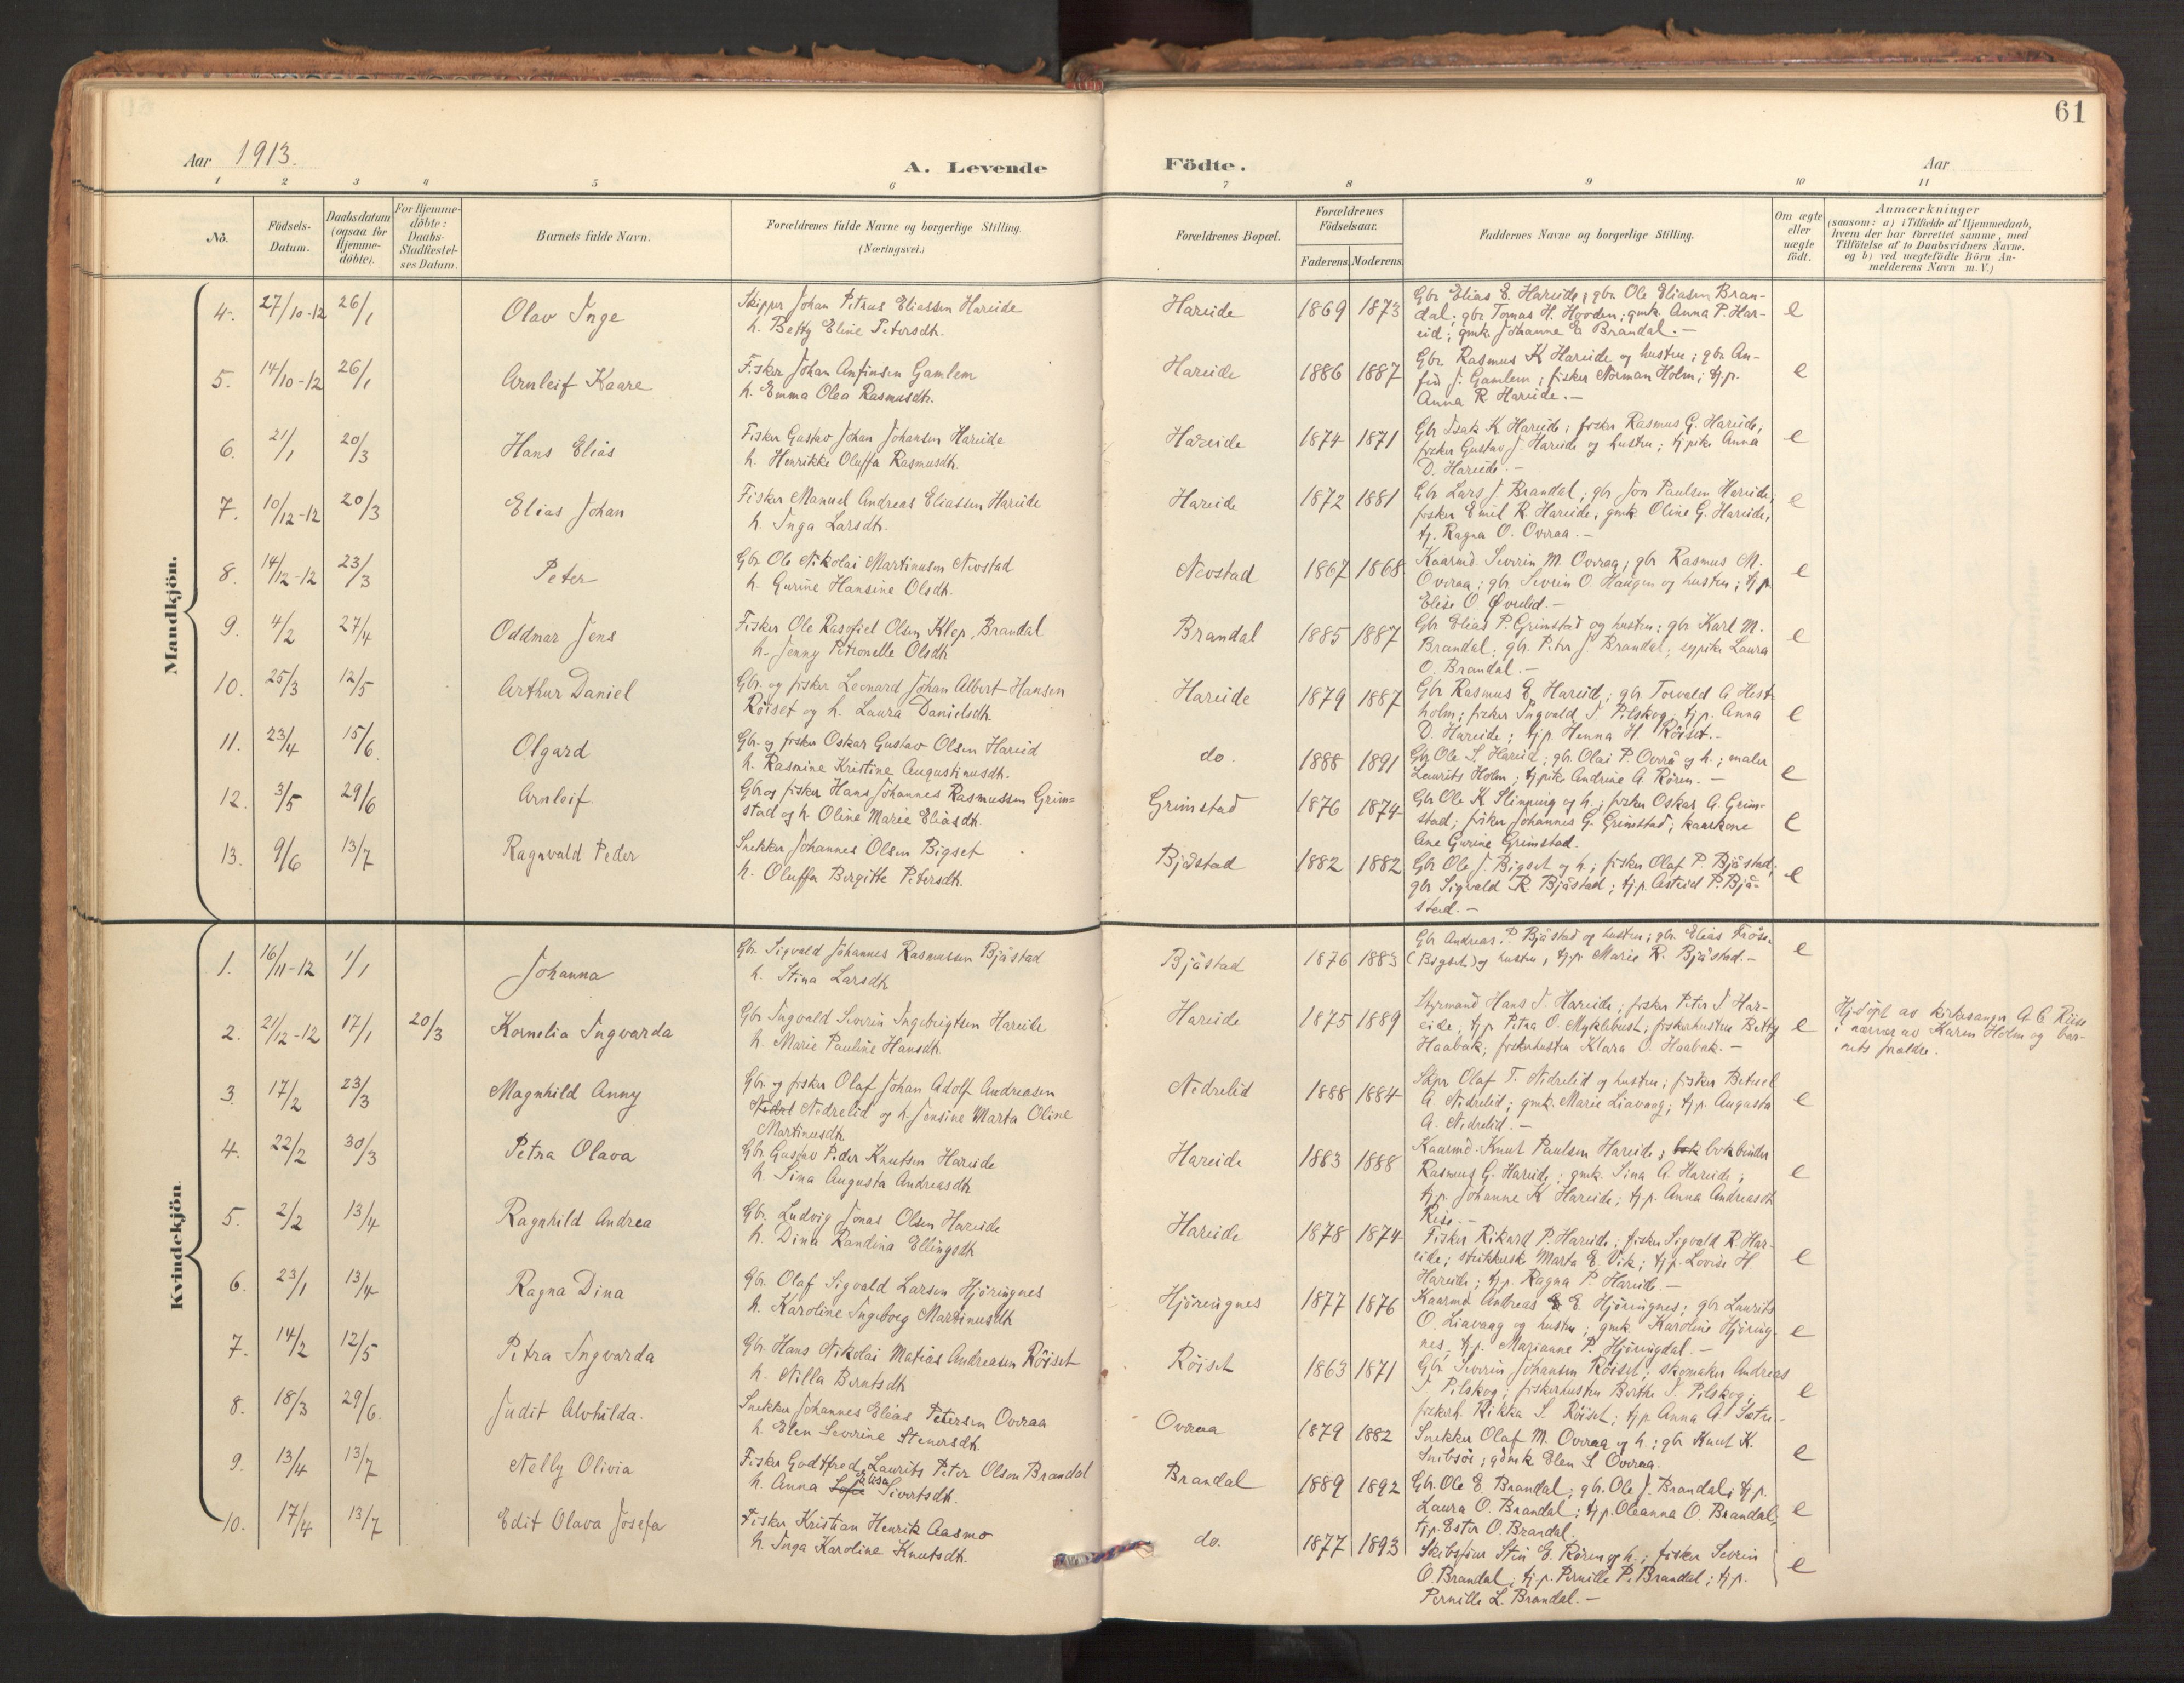 61
Aar 1913.
A. Levende Födte.
Aar
1 2 3 4 5 6 7 8 9 10 11
Nö.
Födsels-Datum.
Daabsdatum (ogsaa for Hjemme-döbte).
For Hjemme-döbte: Daabs-Stadfæstelses Datum.
Barnets fulde Navn.
Forældrenes fulde Navne og borgerlige Stilling.
(Næringsvei.)
Forældrenes Bopæl.
Forældrenes Födselsaar.
Faderens. Moderens.
Faddernes Navne og borgerlige Stilling.
Om ægte eller uægte födt.
Anmærkninger
(saasom: a) i Tilfælde af Hjemmedaab,
hvem der har forrettet samme, med
Tilföielse af to Daabsvidners Navne.
og b) ved uægtefödte Börn An-
melderens Navn m. V.)
Mandkjön.
4. 27/10-12 26/1 Olav Inge
Skipper Johan Petrus Eliassen Hareide
h. Betty Eline Petersdh.
Hareide 1869 1873
Gbr Elias E. Hareide; gbr Ole Eliasen Bran-
dal; gbr Tomas H. Hovden; gmk. Anna P. Har-
eid; gmk. Johanne E Brandal.—
e
5. 14/10-12 26/1 Arnleif Kaare
Fisker Johan Anfinsen Gamlem
h. Emma Olea Rasmusdh.
Hareide 1886 1887
Gbr Rasmus K Hareide og hustru; gbr An-
fin J. Gamlem; fisker Norman Holm; tj.p.
Anna R Hareide.—
e
6. 21/1 20/3 Hans Elias
Fisker Gustav Johan Johansen Hareide
h. Henrikke Oluffa Rasmusdh.
Hareide 1874 1871
Gbr Isak K Hareide; fisker Rasmus G. Hareide;
fisker Gustav J. Hareide og hustru; tj.pike Anna
D. Hareide.—
e
7. 10/12-12 20/3 Elias Johan
Fisker Manuel Andreas Eliassen Hareide
h. Inga Larsdh.
Hareide 1872 1881
Gbr Lars J. Brandal; gbr Jon Paulsen Hareide;
fisker Emil R. Hareide; gmk Oline G. Hareide;
tj. Ragna O. Ovraa.—
e
8. 14/12-12 23/3 Peter
Gbr Ole Nikolai Martinusen Nevstad
h. Gurine Hansine Olsdh.
Nevstad 1867 1868
Kaarmd. Severin M. Ovraa; gbr Rasmus M.
Ovraa; gbr Severin O Haugen og hustru; tj.p.
Elise O. Øvrelid.—
e
9. 4/2 27/4 Oddmar Jens
Fisker Ole Olsen Klep, Brandal
h. Jenny Petronelle Olsdh
Brandal 1885 1887
Gbr Elias P. Grimstad og hustru; gbr Karl M.
Brandal; gbr. Peter J. Brandal; sypike Laura
O. Brandal.—
e
10. 25/3 12/5 Arthur Daniel
Gbr. og fisker Leonard Johan Albert Hansen
Röiset og h. Laura Danielsdh.
Hareide 1879 1887
Gbr Rasmus E Hareid; gbr Torvald A Hest-
holm; fisker Ingvald J. Pilskog; tj.p. Anna
D. Hareide; tj.p. Henna H. Röiset.—
e
11. 23/4 15/6 Olgard
Gbr. og fisker Oskar Gustav Olsen Hareid
h. Rasmine Kristine Augustinusdh.
do. 1888 1891
Gbr Ole S. Hareid; gbr Olai P. Ovrå og h.; maler
Laurits Holm; tj.pike Andrine A. Rören.—
e
12. 3/5 29/6 Arnleif
Gbr og fisker Hans Johannes Rasmussen Grim-
stad og h. Oline Marie Eliasdh.
Grimstad 1876 1874
Gbr Ole K Slinning og h.; fisker Oskar A. Grim-
stad; fisker Johannes G. Grimstad; kaarkone
Ane Gurine Grimstad.
e
13. 9/6 13/7 Ragnvald Peder
Snekker Johannes Olsen Bigset
h. Oluffa Bergitte Petersdh.
Bjåstad 1882 1882
Gbr Ole J. Bigset og h.; fisker Olaf P. Bjåstad;
gbr Sigvald R. Bjåstad; tj.p. Astrid P. Bjå-
stad.—
e
Kvindekjön.
1. 16/11-12 1/1 Johanna
Gbr. Sigvald Johannes Rasmussen Bjåstad
h. Stina Larsdh
Bjåstad 1876 1883
Gbr Andreas P Bjåstad og hustru; gbr. Elias
(Bigset) og hustru; tj.p. Marie R. Bjåstad.—
e
2. 21/12-12 17/1 20/3 Kornelia Ingvarda
Gbr Ingvald Severin Ingebrigtsen Hareide
h. Marie Pauline Hansdh.
Hareide 1875 1889
Styrmand Hans J. Hareide; fisker Peter J Har-
eide; tj.p. Petra O. Myklebust; fiskerhustru Betty
Haabak; fiskerhustru Klara O. Haabak.—
e
Hj.döpt av kirkesanger A C Riise
i nærvær av Karen Holm og bar-
nets forældre.
3. 17/2 23/3 Magnhild Anny
Gbr. og fisker Olaf Johan Adolf Andreasen
Nedrelid og h. Jensine Marta Oline
Martinusdh
Nedrelid 1888 1884
Skpr Olaf T. Nedrelid og hustru; fisker Betuel
A. Nedrelid; gmk. Marie Liavaag; tj.p. Augusta
A. Nedrelid.—
e
4. 22/2 30/3 Petra Olava
Gbr. Gustav Peder Knutsen Hareide
h. Sina Augusta Andreasdh
Hareide 1883 1888
Kaarmd. Knut Paulsen Hareide; bok bokbinder
Rasmus G. Hareide; gmk. Sina A. Hareide;
tj.p. Johanne K Hareide; tj.p. Anna Andreasdh
Rise.—
e
5. 2/2 13/4 Ragnhild Andrea
Gbr. Ludvig Jonas Olsen Hareide
h. Dina Randina Ellingsdh
Hareide 1878 1874
Fisker Rikard P. Hareide; fisker Sigvald R. Har-
eide; strikkersk Marta E. Vik; tj.p. Lovise H
Hareide; tj.p. Ragna P. Hareide—
e
6. 23/1 13/4 Ragna Dina
Gbr. Olaf Sigvald Larsen Hjöringnes
h. Karoline Ingeborg Martinusdh
Hjöringnes 1877 1876
Kaarmd Andreas E. Hjöringnes; gbr Laurits
O. Liavaag og hustru; gmk. Karoline Hjöring-
nes, tj.p. Marianne P. Hjöringdal.—
e
7. 14/2 12/5 Petra Ingvarda
Gbr. Hans Nikolai Matias Andreasen Röiset
h. Nilla Berntsdh
Röiset 1863 1871
Gbr. Severin Johansen Röiset; skomaker Andreas
J Pilskog; fiskerhustru Berthe J. Pilskog;
fiskerh. Rikka S. Röiset; tj.p. Anna A. Sætre—
e
8. 18/3 29/6. Judit Alvhilda.
Snekker Johannes Elias Petersen Ovraa
h. Elen Severine Stenersdh.
Ovraa 1879 1882
Snekker Olaf M. Ovraa og h.; gbr Knut K.
Snibsör; gdmk Elen S. Ovraa.
e
9. 13/4 13/7 Nelly Olivia
Fisker Godtfred Laurits Peter Olsen Brandal
h. Anna Sivertsdh.
Brandal 1889 1892
Gbr. Ole E Brandal; gbr. Ole J. Brandal; tj.p.
Laura O. Brandal; tj.p. Oleanna O. Brandal;
tj.p. Ester O. Brandal.
e
10. 17/4 13/7 Edit Olava Josefa
Fisker Kristian Henrik Aasmo
h. Inga Karoline Knutsdh.
do. 1877 1893
Skibsförer Stin E. Rören og h.; fisker Severin
O. Brandal; tj.p. Pernille P. Brandal; tj.p.
Pernille L. Brandal.—
e